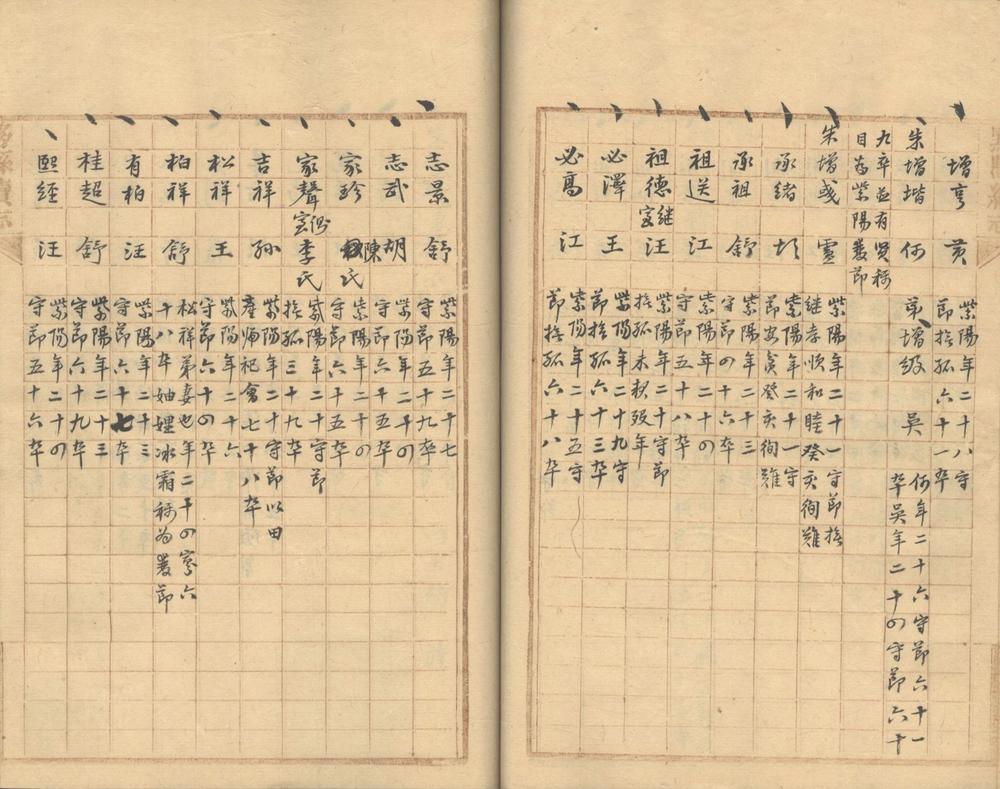 增亨 黄 紫陽年二十八守
節撫孤六十一卒
朱增堦 何 弟增級 吳 何年二十六守節六十一
卒吳年二十四守節六十
九卒並有賢稱
目為紫陽雙節
朱增盛 盧 紫陽年二十一守節撫
継孝順和睦癸亥徇難
承緒 紫陽年二十一守
節安貧癸亥徇難
承祖 舒 紫陽年二十三
守節四十六卒
祖送 江 紫陽年二十四
守節五十八卒
祖德 継室 汪 紫陽年二十守節
撫孤未秋歿年
必澤 王 紫陽年二十九守
節撫孤六十三卒
必高 江 紫陽年二十五守
節撫孤六十八卒
志景 舒 紫陽年二十七
守節五十九卒
志武 胡 紫陽年二十四
守節五十五卒
家珍 陳氏 紫陽年二十四
守節六十五卒
家聲 側室 李氏 紫陽年二十守節
撫孤三十九卒
吉祥 孫 紫陽年二十守節以田
產歸祀會七十八卒
松祥 王 紫陽年二十六
守節六十四卒
柏祥 舒 松祥弟妻也年二十四寡六
十八卒妯娌冰霜稱為雙節
有柏 汪 紫陽年二十三
守節六十七卒
桂超 舒 紫陽年二十三
守節六十九卒
熙经 汪 紫陽年二十四
守節五十六卒